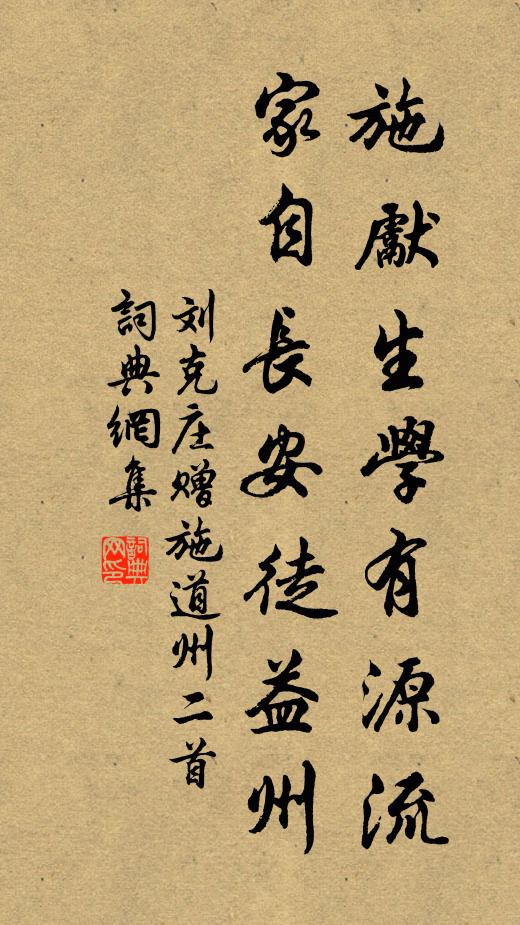 施獻生學有源流
家自長安徒益州
刘克庄赠施道州二首
詞典網集
詞典网印